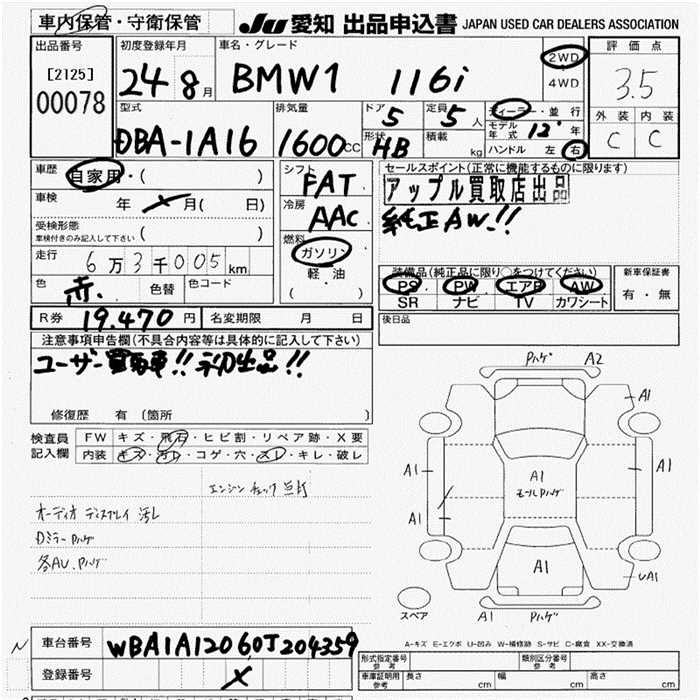 車内保管・守衛保管
JU 愛知 出品申込書 JAPAN USED CAR DEALERS ASSOCIATION
出品番号 [2125] 00078
初度登録年月 24 8月
車名・グレード BMW1 116i
2WD 4WD
評価点 3.5
外装 C 内装 C
型式 DBA-1A16
排気量 1600cc
ドア 5 定員 5人
形状 HB 積載 kg
ディーラー・並行
モデル年式 12' 年
ハンドル 左 右
車歴 自家用・( )
車検 年 月( 日)
受検形態 車検付きのみ記入して下さい ( )
走行 6万3千005km
色 赤. 色替 色コード
シフト FAT
冷房 AAC
燃料 ガソリン 軽・油 ( )
セールスポイント(正常に機能するものに限ります)
アップル買取店出品
純正AW.!!
装備品(純正品に限り○をつけてください)
PS PW エアB AW
SR ナビ TV カワシート
新車保証書 有・無
R券 19.470円 名変期限 月 日
後日品
注意事項申告欄(不具合内容等は具体的に記入して下さい)
ユーザー買取車!! 初出品!!
修復歴 有 〔箇所 〕
検査員記入欄
FW キズ・飛石・ヒビ割・リペア跡・X要
内装 キズ・汚レ・コゲ・穴・スレ・キレ・破レ
エンジン チェック 点灯
オーディオ ディスプレイ 汚レ
Dミラー Pハゲ
各AU.Pハゲ
Pハゲ A2
A1
A1 A1
A1 モールPハゲ
A1
A1
UA1
スペア A1 Pハゲ
A-キズ E-エクボ U-凹み W-補修跡 S-サビ C-腐食 XX-交換済
N 車台番号 WBA1A12060J204359
登録番号
形式指定番号 参考 類別区分番号 参考
車庫証明用 参考 長さ cm 幅 cm 高さ cm